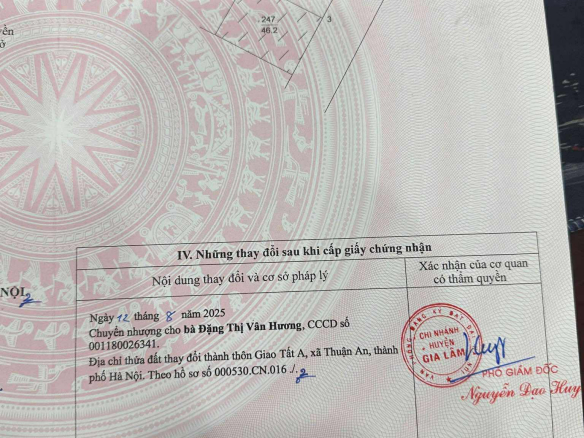 yền
ở
247
46.2
3
IV. Những thay đổi sau khi cấp giấy chứng nhận
Nội dung thay đổi và cơ sở pháp lý
Xác nhận của cơ quan
có thẩm quyền
NỘI,
Ngày 12 tháng 8 năm 2025
Chuyển nhượng cho bà Đặng Thị Vân Hương, CCCD số
001180026341.
Địa chỉ thửa đất thay đổi thành thôn Giao Tất A, xã Thuận An, thành
phố Hà Nội. Theo hồ sơ số 000530.CN.016 ./.
CHI NHÁNH
HUYỆN
GIA LÂM
PHÓ GIÁM ĐỐC
Nguyễn Đạo Huy